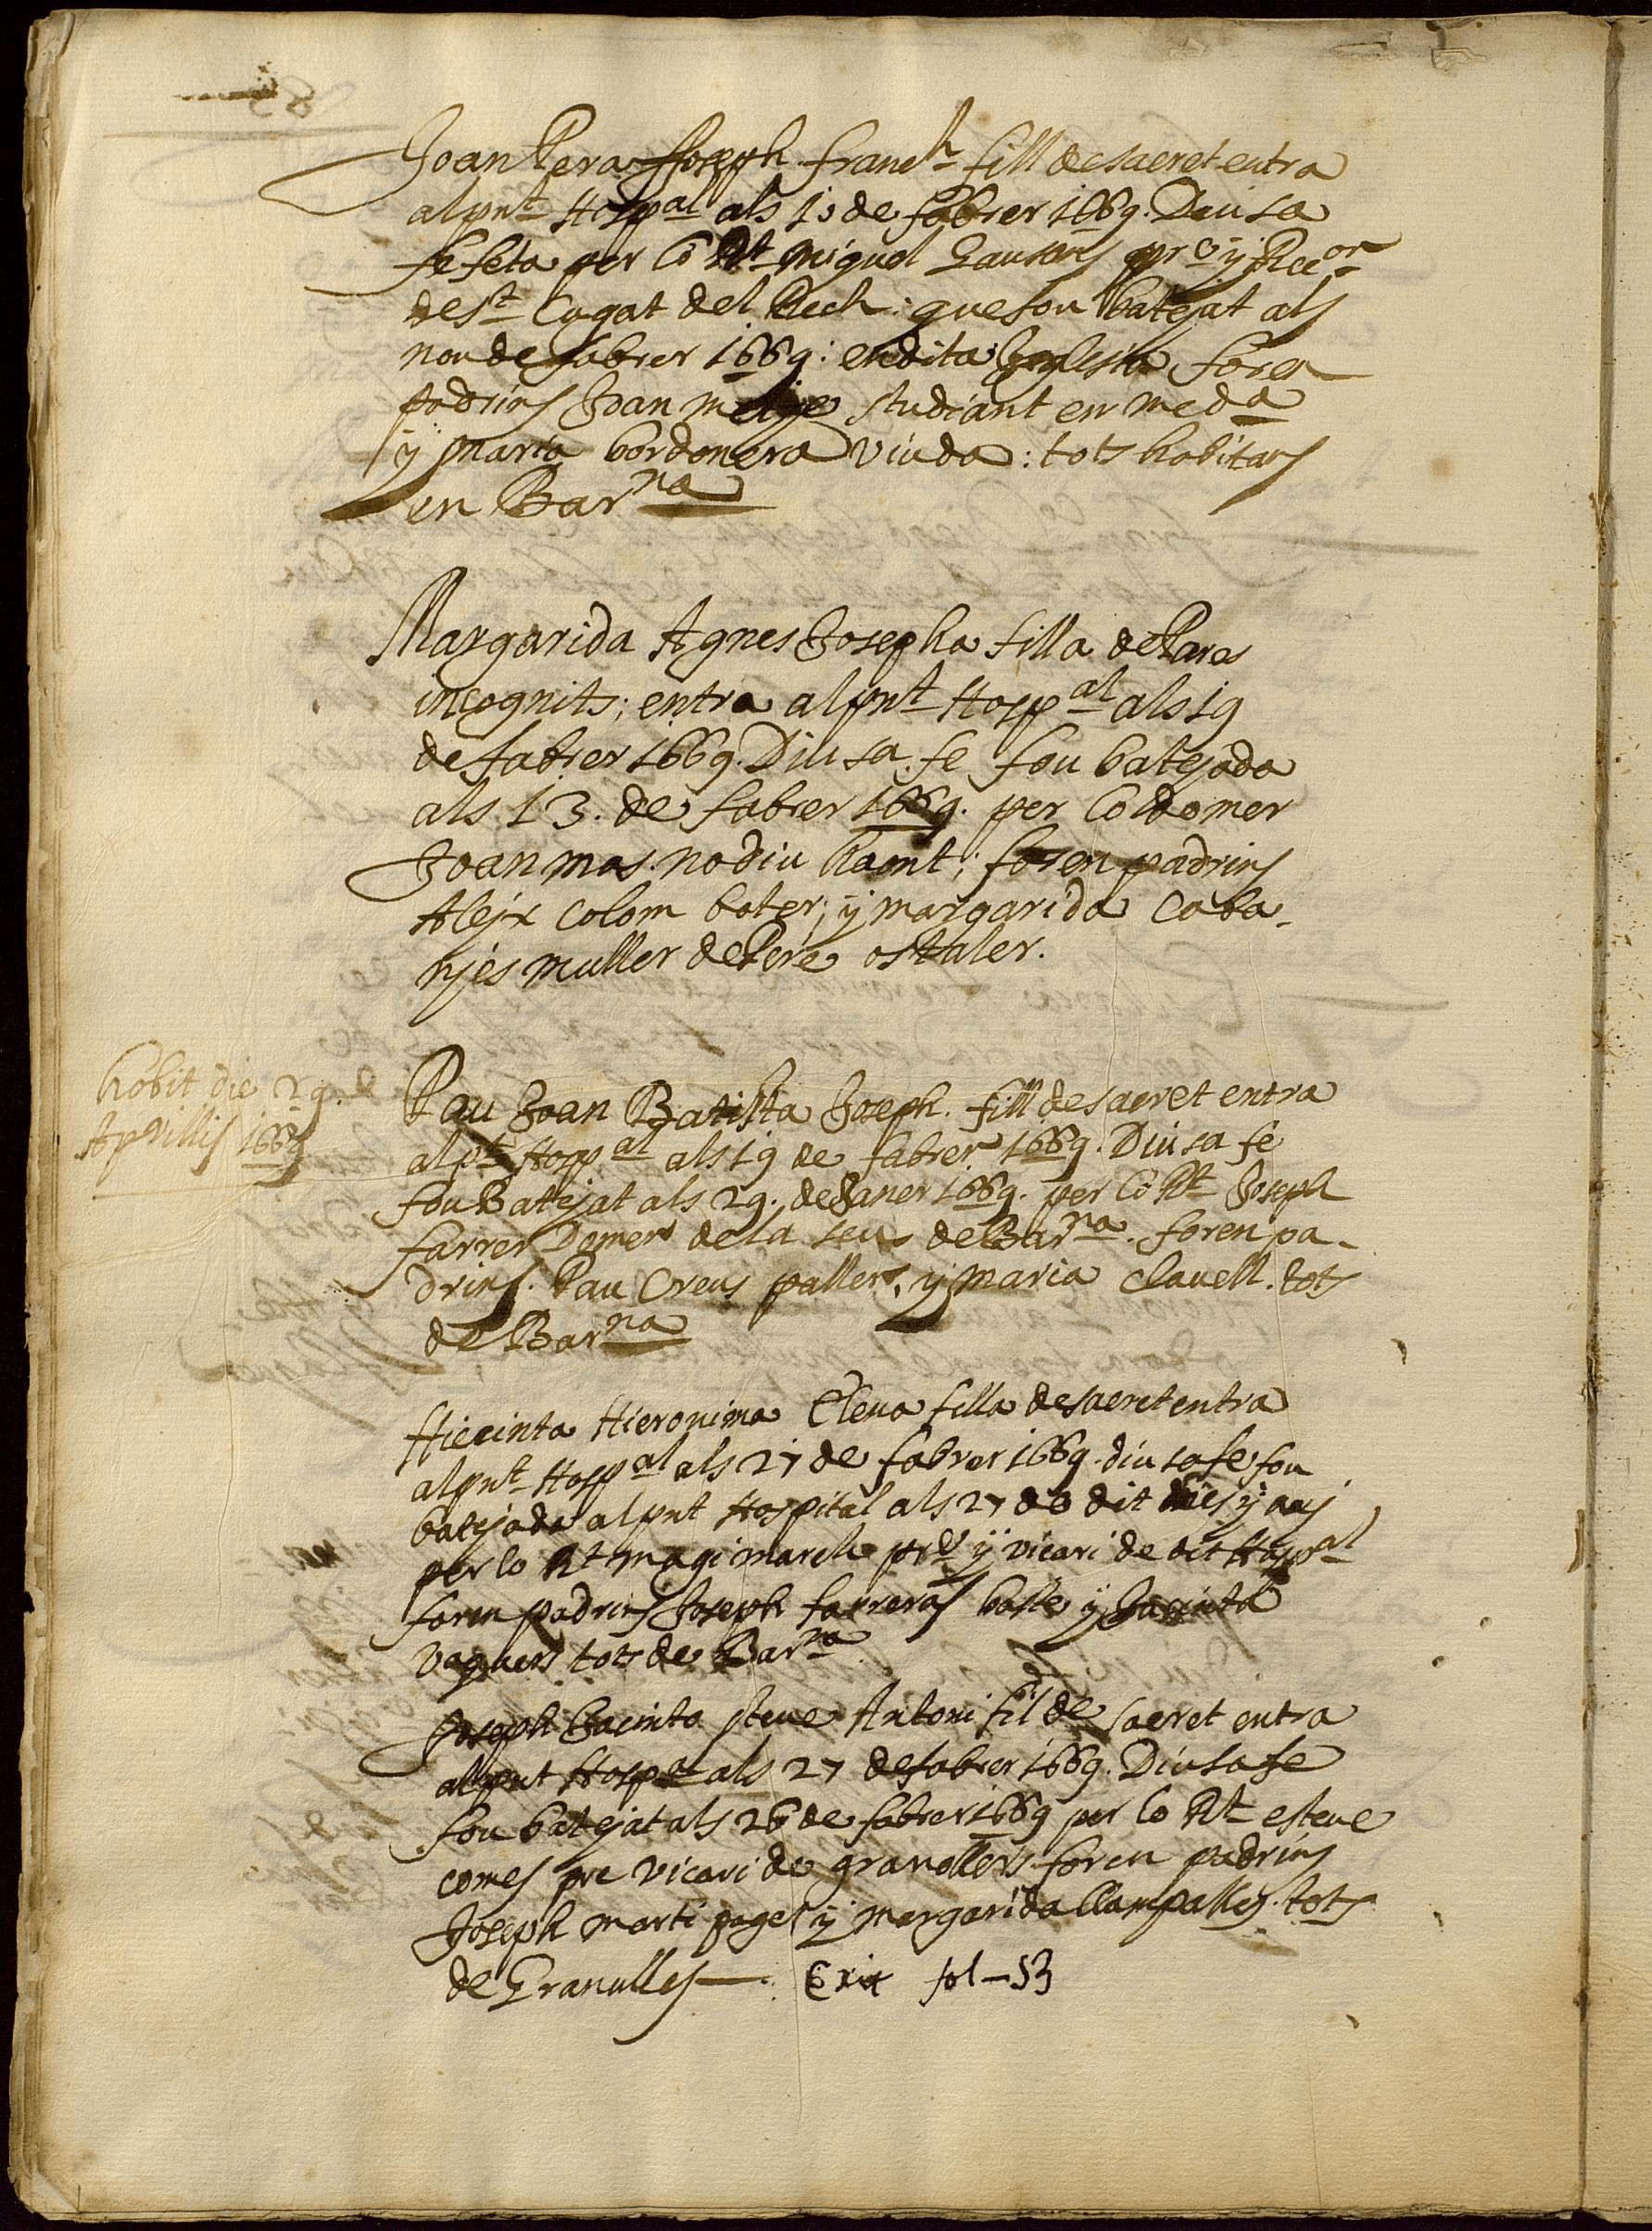 Joan Pera Joseph. franch fill de sacret entra
al pnt Hospal als 1j de fabrer 1669. Diu sa
fe feta per lo Rt miquel pre y Recor
de st Cugat del Rech: que fou batejat als
nou de fabrer 1669: en dita Iglesia foren
padrins Joan metje studiant en meda
y maria bordonera viuda: tots habitans
en Barna
Margarida Agnes Josepha filla de Pares
incognits; entra al pnt Hospal als 19
de fabrer 1669. Diu sa fe fou batejada
als 13. de fabrer 1669. per lo domer
Joan mas. no diu haont; foren padrins
Alejx colom boter; y margarida caba-
njes muller de Pere ostaler.
hobit die 29.
Aprillis 1669
Pau Joan Batista Joseph. fill de sacret entra
al pt Hospal als 19 de fabrer 1669. Diu sa fe
fou Batejat als 29. de Janer 1669. per lo Rt Joseph
farrer Domer de la seu de Barna. foren pa-
drins. Pau Creus paller, y maria clauell. tots
de Barna
Hiecinta Hieronima Elena filla de sacret entra
al pnt Hospal als 27 de fabrer 1669. diu sa fe fou
batejada al pnt Hospital als 27 de dit mes y anj
per lo Rt magi march pre y vicari de dit Hospal
foren padrins Joseph farreras baste y Jacinta
vaquers tots de Barna
Joseph Jacinto steue Antoni fil de sacret entra
al pnt Hospal als 27 de fabrer 1669. Diu sa fe
fou batejat als 26 de fabrer 1669 per lo Rt esteue
comes pre vicari de granollers foren padrins
Joseph marti pages y margarida llampalles. tots
de Granulles fol-53